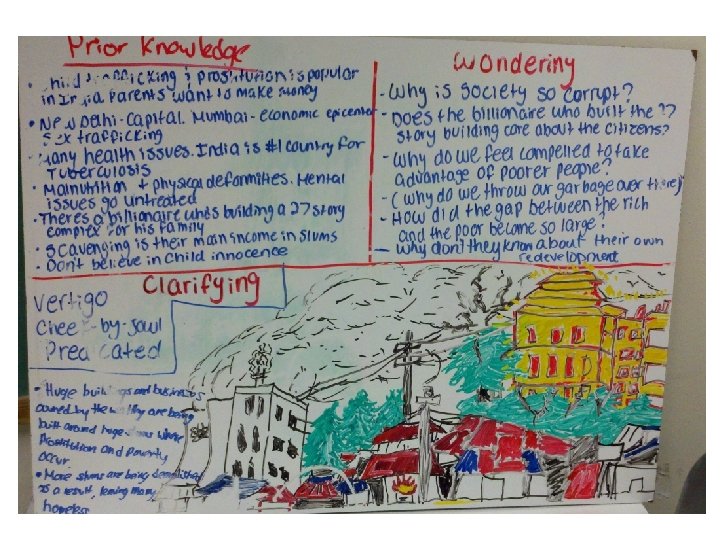 Prior Knowledge
• child trafficking & prostitution is popular
in India Parents want to make money
• New Delhi - Capital. Mumbai - economic epicenter
Sex trafficking
• Many health issues. India is #1 country for
Tuberculosis
• Malnutrition + physical deformities. Mental
issues go untreated
• Theres a billionaire whos building a 27 story
complex for his family
• Scavenging is their main income in slums
• Don't believe in child innocence
Wondering
- Why is society so corrupt?
- Does the billionaire who built the 27
story building care about the citizens?
- Why do we feel compelled to take
advantage of poorer people?
- (why do we throw our garbage over there)
- How did the gap between the rich
and the poor become so large?
- Why don't they know about their own
redevelopment
Clarifying
Vertigo
Cheek-by-Jowl
Predicated
• Huge buildings and businesses
owned by the wealthy are being
built around huge slums where
Prostitution and Poverty
occur.
• More slums are being demolished
as a result, leaving many
homeless